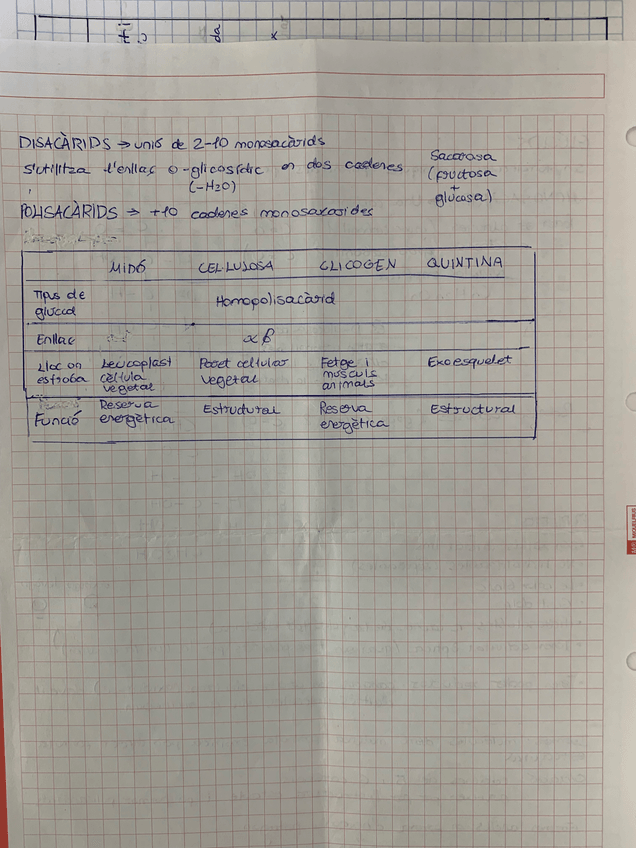 DISACÀRIDS → unió de 2-10 monosacàrids
S'utilitza l'enllaç o-glicosídic en dos cadenes
(-H2O)
Sacarosa
(fructosa
+
glucosa)
POLISACÀRIDS → +10 cadenes monosacarides
MIDÓ CEL·LULOSA GLICOGEN QUINTINA
Tipus de
glúcid
Homopolisacàrid
Enllaç α β
Lloc on
es troba
Leucoplast
cèl·lula
vegetal
Paret cel·lular
vegetal
Fetge i
músculs
animals
Exoesquelet
Funció
Reserva
energètica
Estructural
Reserva
energètica
Estructural
MIQUELRIUS